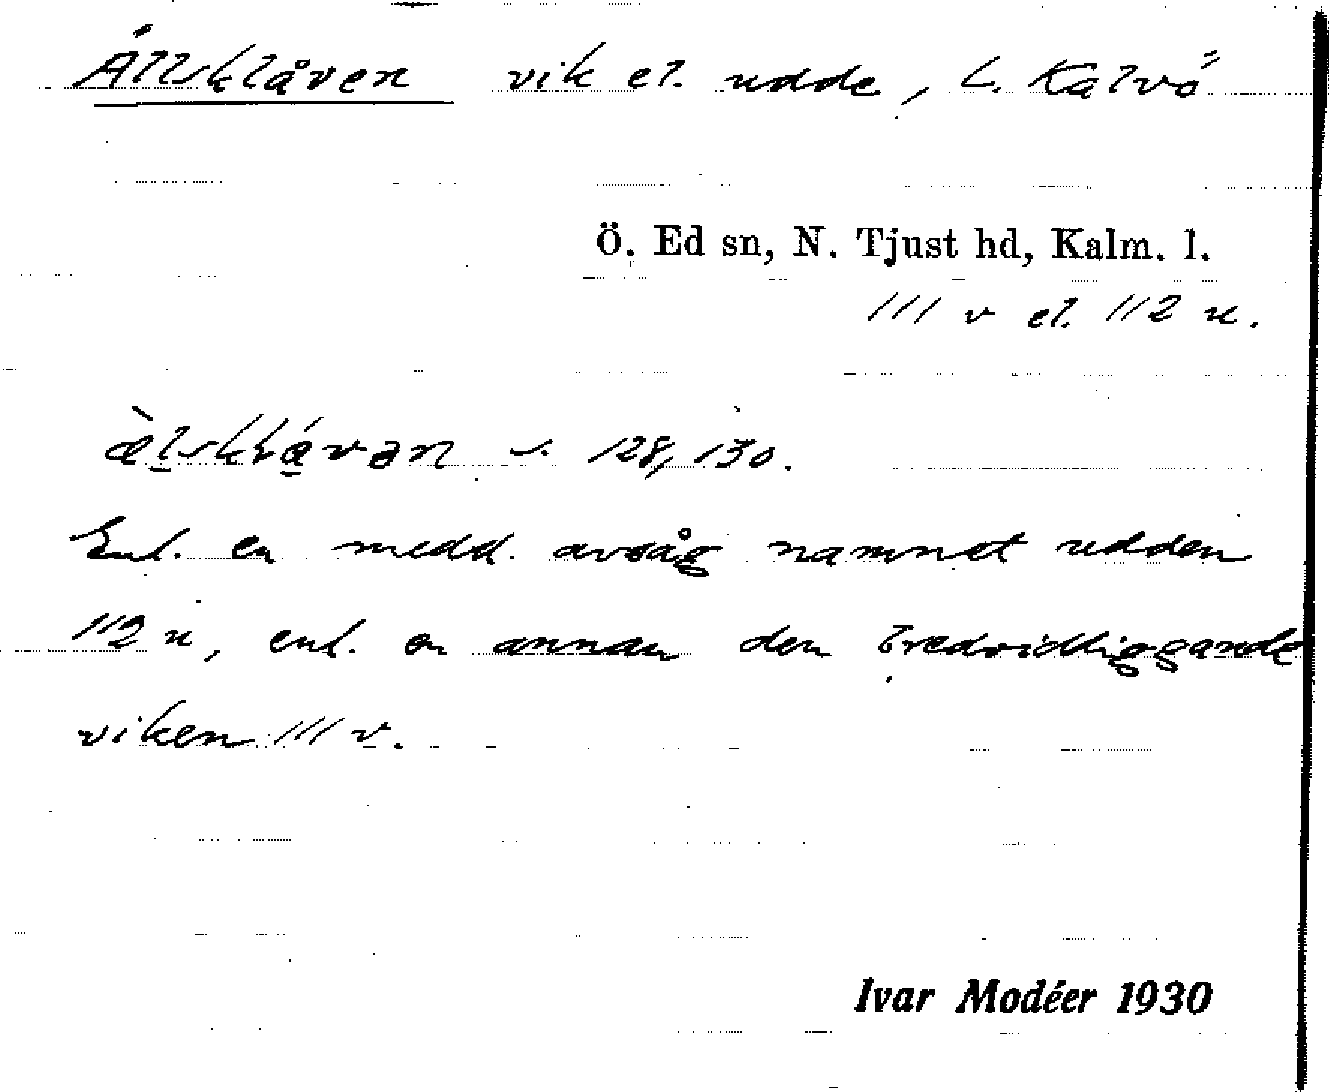 Ällsklåven vik el. udde, L. Kalvö
Ö. Ed sn, N. Tjust hd, Kalm. l.
111 v el. 112 u.
s. 128, 130.
Enl. en medd. avsåg namnet udden
112 u, enl. en annan den bredvidliggande
viken 111 v.
Ivar Modéer 1930